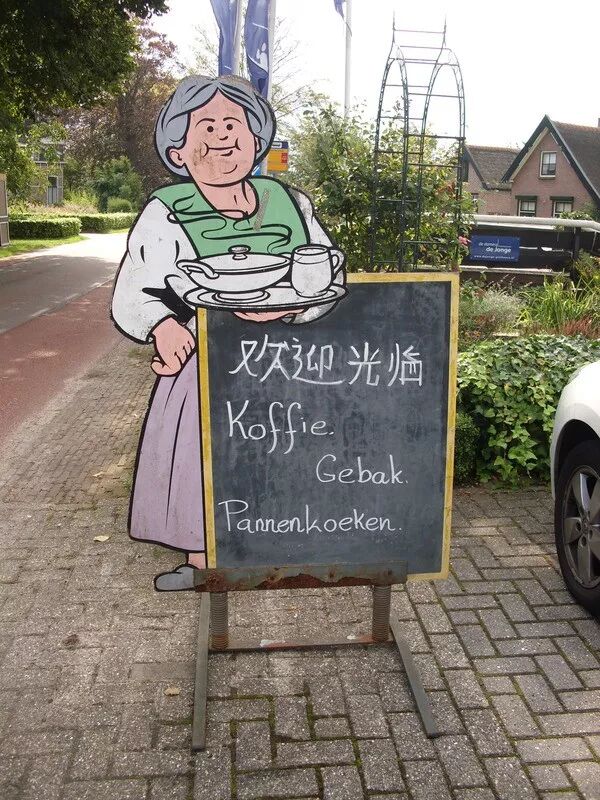 欢迎光临
Koffie.
Gebak.
Pannenkoeken.
de Jonge